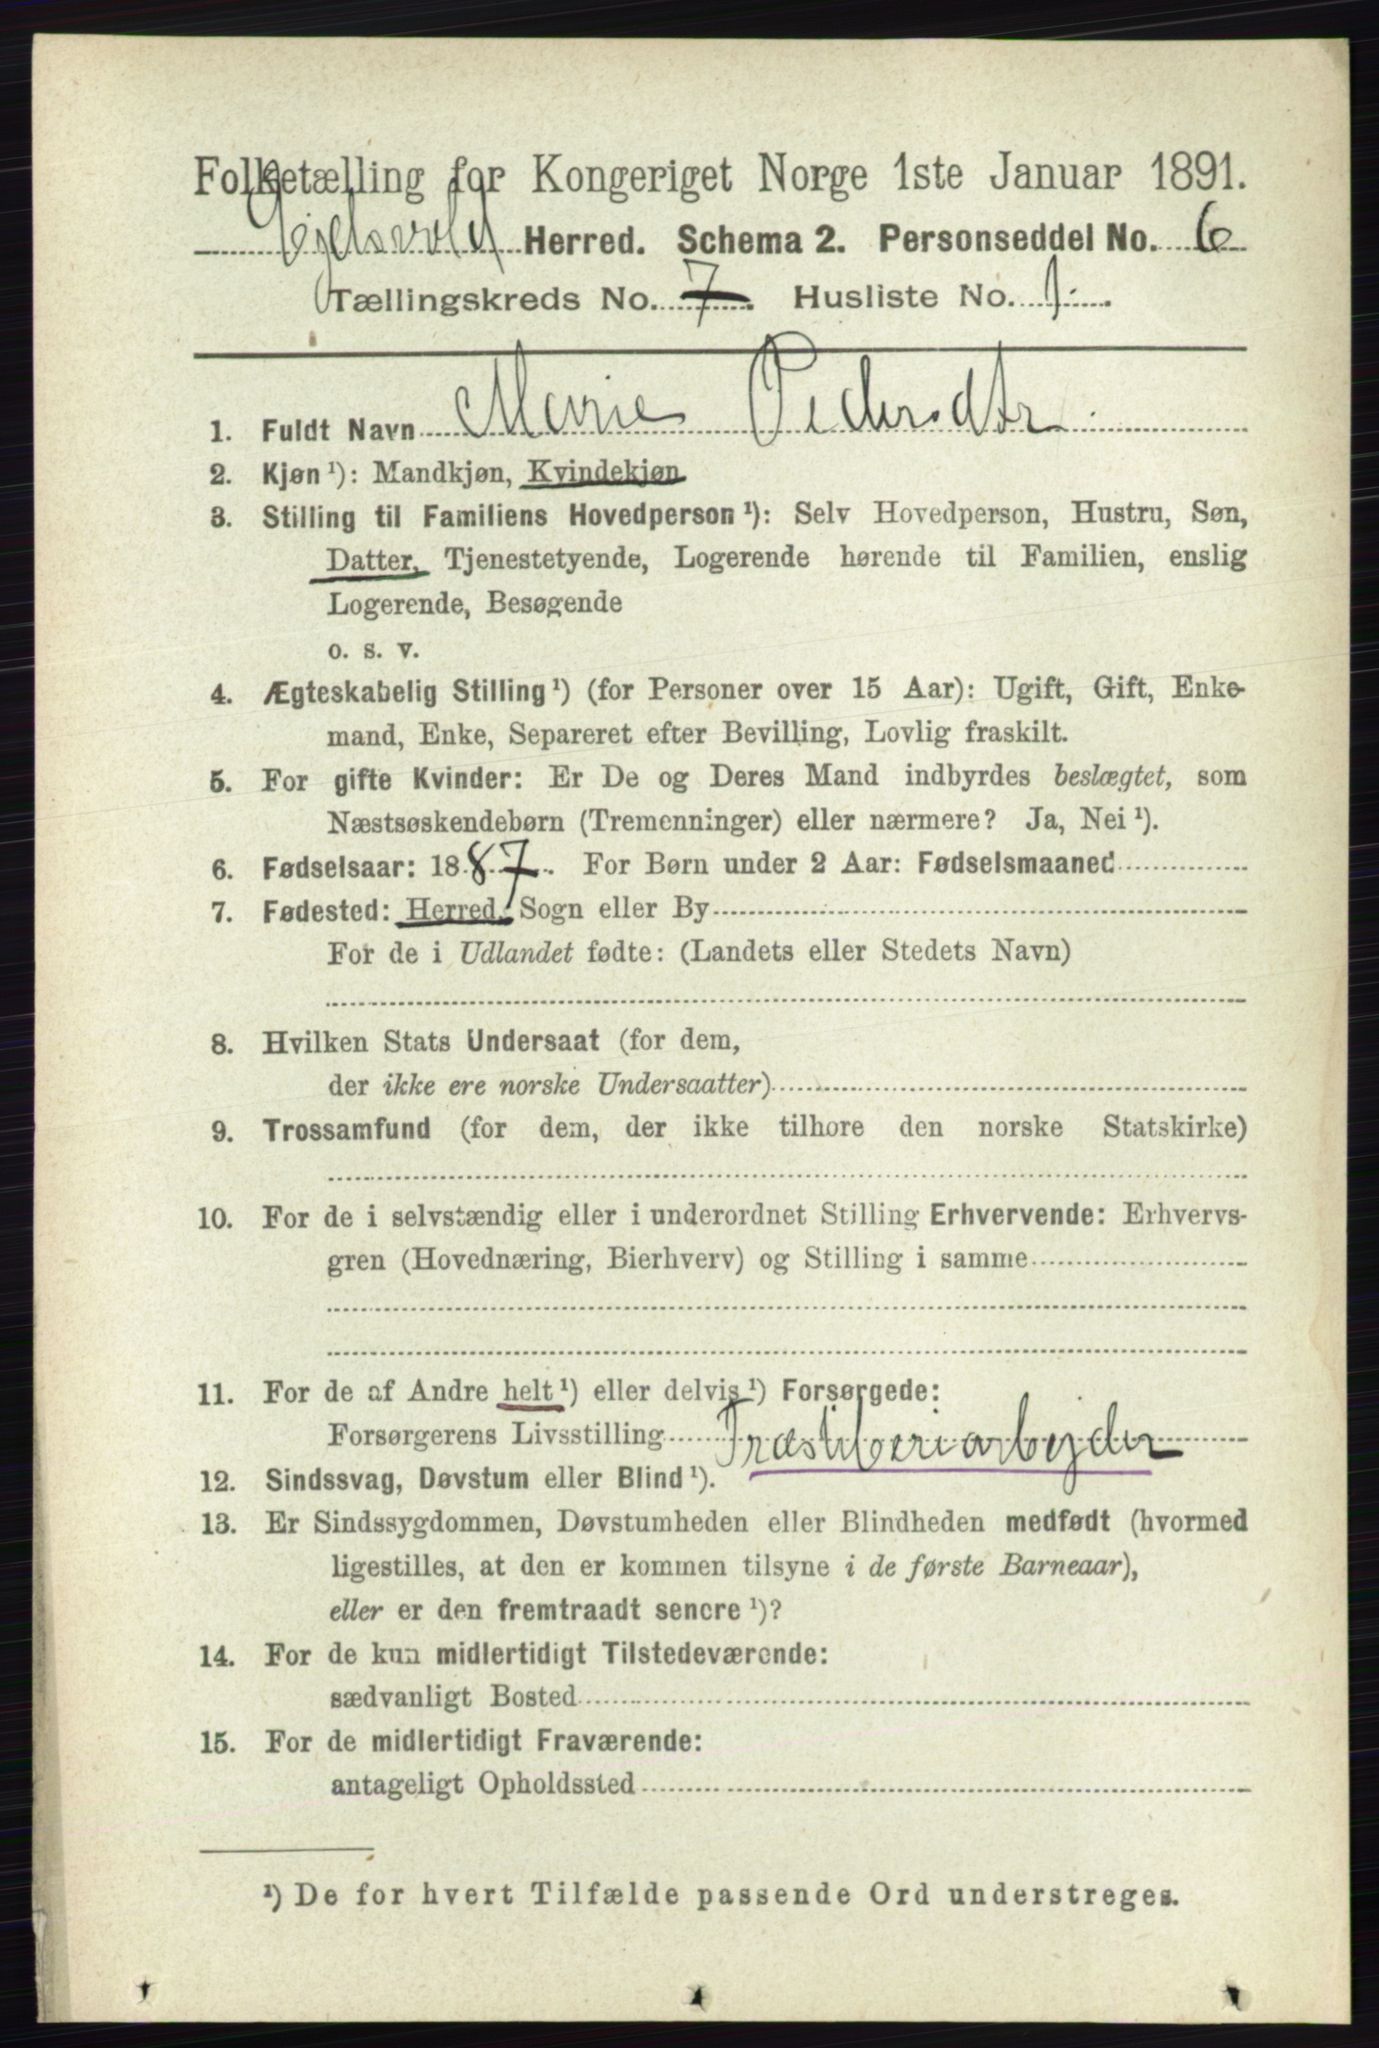 Folketælling for Kongeriget Norge 1ste Januar 1891.
Herred. Schema 2. Personseddel No. 6
Tællingskreds No. 7. Husliste No. 1.
1. Fuldt Navn Marie Pedersdtr
2. Kjøn ¹): Mandkjøn, Kvindekjøn
3. Stilling til Familiens Hovedperson ¹): Selv Hovedperson, Hustru, Søn,
Datter, Tjenestetyende, Logerende hørende til Familien, enslig
Logerende, Besøgende
o. s. v.
4. Ægteskabelig Stilling ¹) (for Personer over 15 Aar): Ugift, Gift, Enke-
mand, Enke, Separeret efter Bevilling, Lovlig fraskilt.
5. For gifte Kvinder: Er De og Deres Mand indbyrdes beslægtet, som
Næstsøskendebørn (Tremenninger) eller nærmere? Ja, Nei ¹).
6. Fødselsaar: 1887. For Børn under 2 Aar: Fødselsmaaned
7. Fødested: Herred, Sogn eller By
For de i Udlandet fødte: (Landets eller Stedets Navn)
8. Hvilken Stats Undersaat (for dem,
der ikke ere norske Undersaatter)
9. Trossamfund (for dem, der ikke tilhøre den norske Statskirke)
10. For de i selvstændig eller i underordnet Stilling Erhvervende: Erhvervs-
gren (Hovednæring, Bierhverv) og Stilling i samme
11. For de af Andre helt ¹) eller delvis ¹) Forsørgede:
Forsørgerens Livsstilling Træsliberiarbejder
12. Sindssvag, Døvstum eller Blind ¹).
13. Er Sindssygdommen, Døvstumheden eller Blindheden medfødt (hvormed
ligestilles, at den er kommen tilsyne i de første Barneaar),
eller er den fremtraadt senere ¹)?
14. For de kun midlertidigt Tilstedeværende:
sædvanligt Bosted
15. For de midlertidigt Fraværende:
antageligt Opholdssted
¹) De for hvert Tilfælde passende Ord understreges.